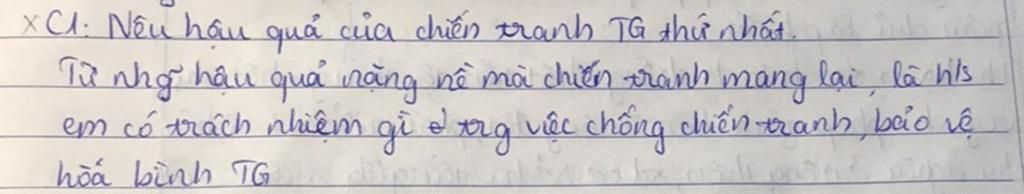 x C1: Nêu hậu quả của chiến tranh TG thứ nhất.
Từ nhg~ hậu quả nặng nề mà chiến tranh mang lại, là h/s
em có trách nhiệm gì trg việc chống chiến tranh, bảo vệ
hoà bình TG